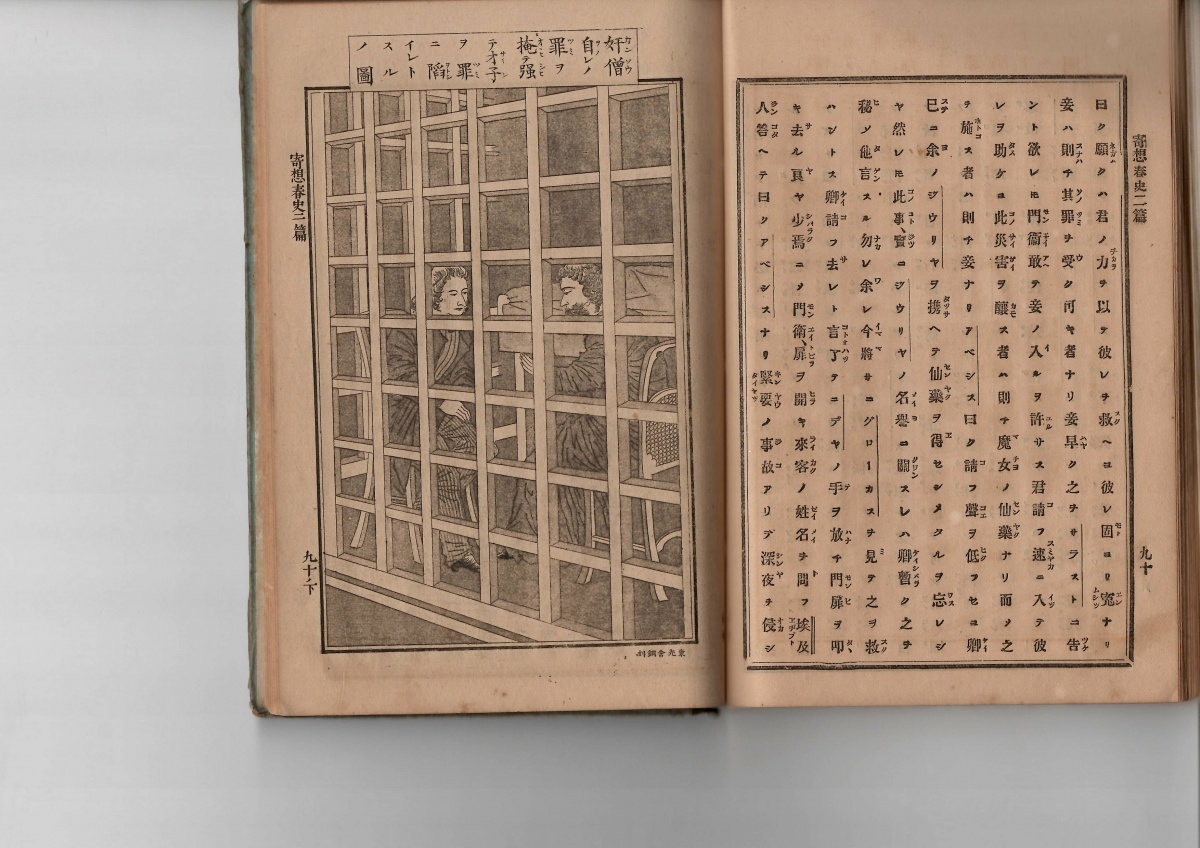 寄想春史二篇
九十
曰ク願クハ君ノ力ヲ以テ彼レヲ救ヘヨ彼レ固ヨリ寃ナリ
妾ハ則チ其罪ヲ受ク可キ者ナリ妾早ク之ヲサラストニ告
ント欲レ𪜈門衞敢テ妾ノ入ルヲ許サス君請フ速ニ入テ彼
レヲ助ケヨ此災害ヲ釀ス者ハ則チ魔女ノ仙藥ナリ而ノ之
ヲ施ス者ハ則チ妾ナリアベシス曰ク請フ聲ヲ低フセヨ卿
已ニ余ノジウリヤヲ携ヘテ仙藥ヲ得セシメタルヲ忘レシ
ヤ然レ𪜈此事實ニジウリヤノ名譽ニ關スレハ卿暫ク之ヲ
秘メ他言スル勿レ余レ今將サニグローカスヲ見テ之ヲ救
ハントス卿請フ去レト言了テニデヤノ手ヲ放チ門扉ヲ叩
キ去ル頁ヤ少焉ニメ門衞扉ヲ開キ來客ノ姓名ヲ問フ埃及
人答ヘテ曰クアベシスナリ緊要ノ事故アリテ深夜ヲ侵シ
奸僧
自レノ
罪ヲ
掩テ强
テ才子
ヲ罪
ニ陷
イレト
スル
ノ圖
寄想春史二篇
九十ノ下
東光舍銅刻